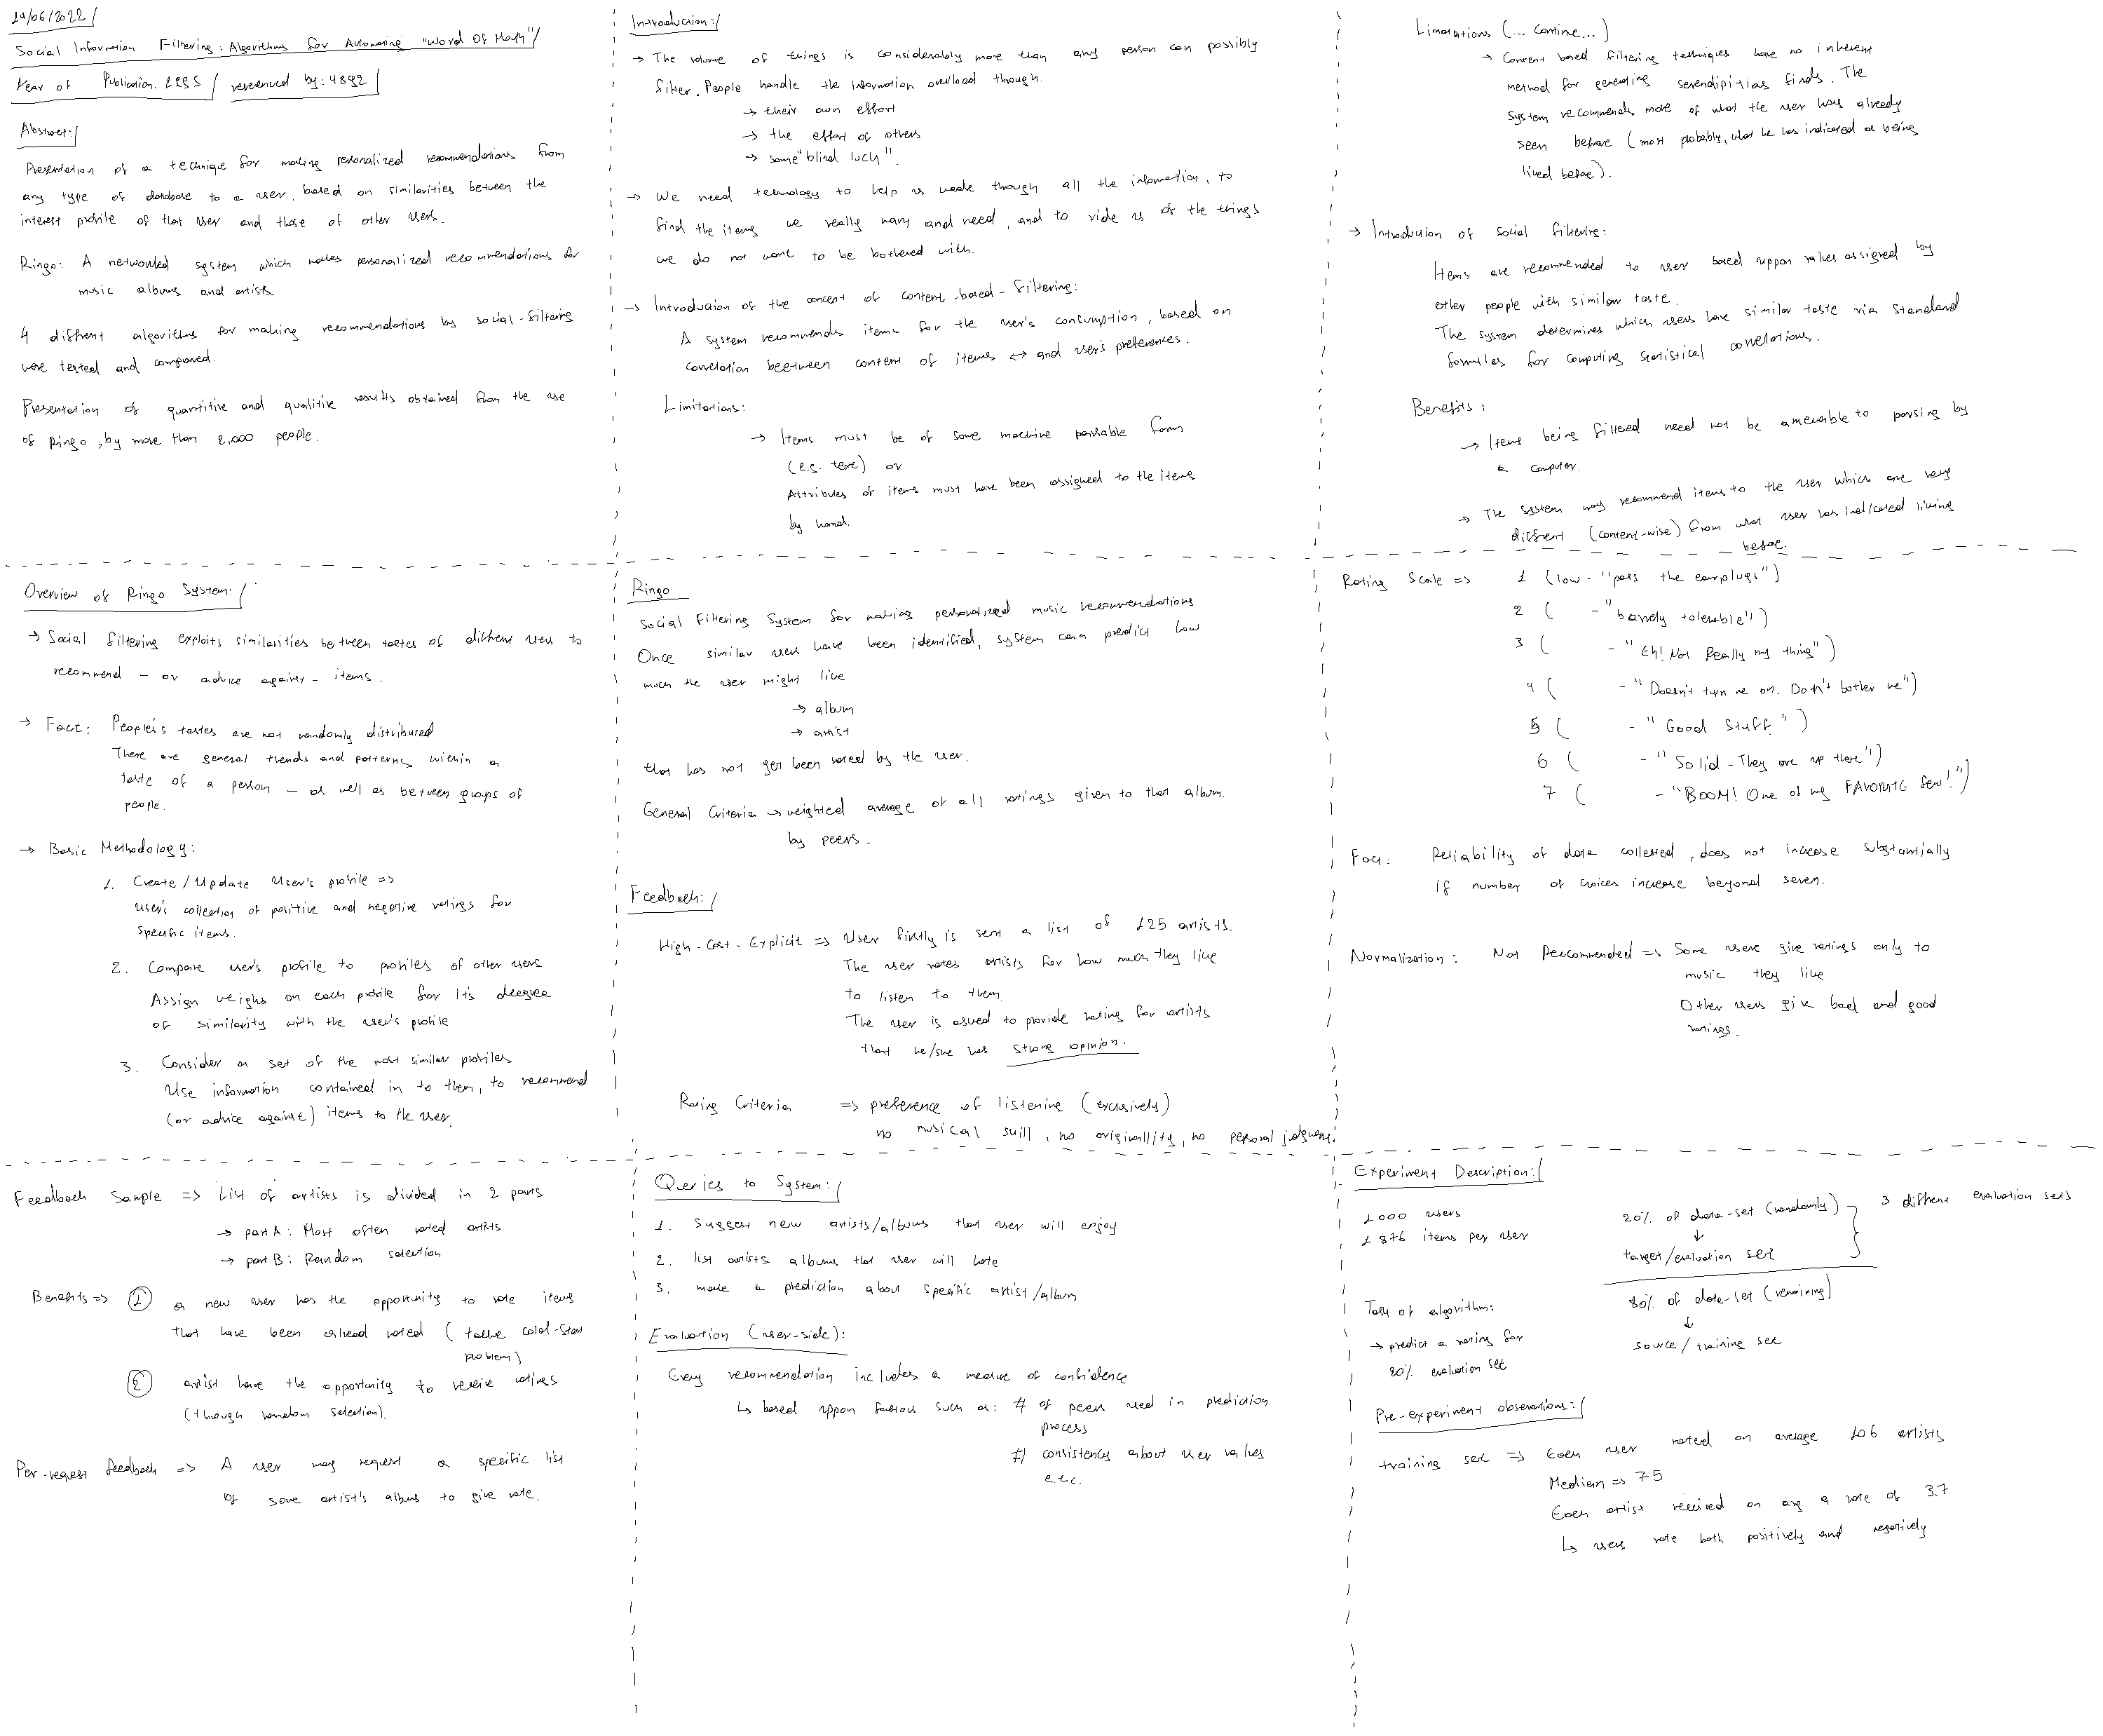 14/06/2022
Social Information Filtering: Algorithms for Automating "Word Of Mouth"
Year of Publication: 1995 / referenced by: 4892
Abstract:
Presentation of a technique for making personalized recommendations from
any type of database to a user, based on similarities between the
interest profile of that user and those of other users.
Ringo: A networked system which makes personalized recommendations for
music albums and artists
4 diffrent algorithms for making recommendations by social-filtering
were tested and compared.
Presentation of quantitive and qualitive results obtained from the use
of Ringo, by more than 2,000 people.
Introduction:
→ The volume of things is considerably more than any person can possibly
filter. People handle the information overload through.
→ their own effort
→ the effort of others
→ some "blind luck".
→ We need technology to help us wade though all the information, to
find the items we really want and need, and to ride us of the things
we do not want to be bothered with.
→ Introduction of the concept of content-based-filtering:
A system recommends items for the user's consumption, based on
correlation beetween content of items ↔ and user's preferences.
Limitations:
→ Items must be of some machine parsable form
(e.g. text) or
Attributes of items must have been assigned to the items
by hand.
Limitations (... continue...)
→ Content based filtering techniques have no inherent
method for generating serendipitias finds. The
system recommends more of what the user has already
seen before (most probably, what he has indicated as being
liked before).
→ Introduction of social filtering:
Items are recommended to user based uppon values assigned by
other people with similar taste.
The system determines which users have similar taste via standard
formulas for computing statistical correlations.
Benefits:
→ Items being filtered need not be amenable to parsing by
a computer.
→ The system may recommend items to the user which are very
diffrent (content-wise) from what user has indicated liking
before.
Overview of Ringo System:
→ Social filtering exploits similarities between tastes of diffrent users to
recommend - or advice against - items.
→ Fact: People's tastes are not randomly distributed
There are general trends and patterns within a
taste of a person - as well as between groups of
people.
→ Basic Methodology:
1. Create/Update User's profile =>
user's collection of positive and negative ratings for
specific items.
2. Compare user's profile to profiles of other users
Assign weighs on each profile for its deegree
of similarity with the user's profile
3. Consider a set of the most similar profiles
Use information contained in to them, to recommend
(or advice against) items to the user.
Ringo
Social Filtering System for making personalized music recommendations
Once similar users have been identified, system can predict how
much the user might like
→ album
→ artist
that has not yet been rated by the user.
General Criteria → weighted average of all ratings given to that album.
by peers.
Feedback:
High-Cost-Explicit => User firstly is sent a list of 125 artists.
The user rates artists for how much they like
to listen to them.
The user is asked to provide rating for artists
that he/she has strong opinion.
Rating Criteria => preference of listening (exclusively)
no musical skill, no originallity, no personal judgment.
Rating Scale => 1 (low - "pass the earplugs")
2 ( - "barely tolerable")
3 ( - "Eh! Not Really my thing")
4 ( - "Doesn't turn me on. Don't bother me")
5 ( - "Good Stuff")
6 ( - "Solid - They are up there")
7 ( - "BOOM! One of my FAVORITE few!")
Fact: Reliability of data collected, does not increase substantially
if number of choices increase beyond seven.
Normalization: Not Reccommended => Some users give ratings only to
music they like
Other users give bad and good
ratings.
Feedback Sample => List of artists is divided in 2 parts
→ part A: Most often rated artists
→ part B: Random selection
Benefits => ① a new user has the opportunity to rate items
that have been already rated (tackle cold-start
problem)
② artist have the opportunity to receive ratings
(through random selection).
Per-request feedback => A user may request a specific list
of some artist's albums to give rate.
Queries to System:
1. Suggest new artists/albums that user will enjoy
2. list artists albums that user will hate
3. make a prediction about specific artist/album
Evaluation (user-side):
Every recommendation includes a measure of confidence
↳ based uppon factors such as: # of peers used in prediction
process
# consistency about user values
etc.
Experiment Description:
1000 users
1876 items per user
20% of data-set (randomly)
↓
target/evaluation set
3 diffrent evaluation sets
80% of data-set (remaining)
↓
source / training set
Task of algorithm:
→ predict a rating for
20% evaluation set
Pre-experiment observations:
training set => Each user rated on average 106 artists
Median => 75
Each artist received on avg a rate of 3.7
↳ users rate both positively and negatively